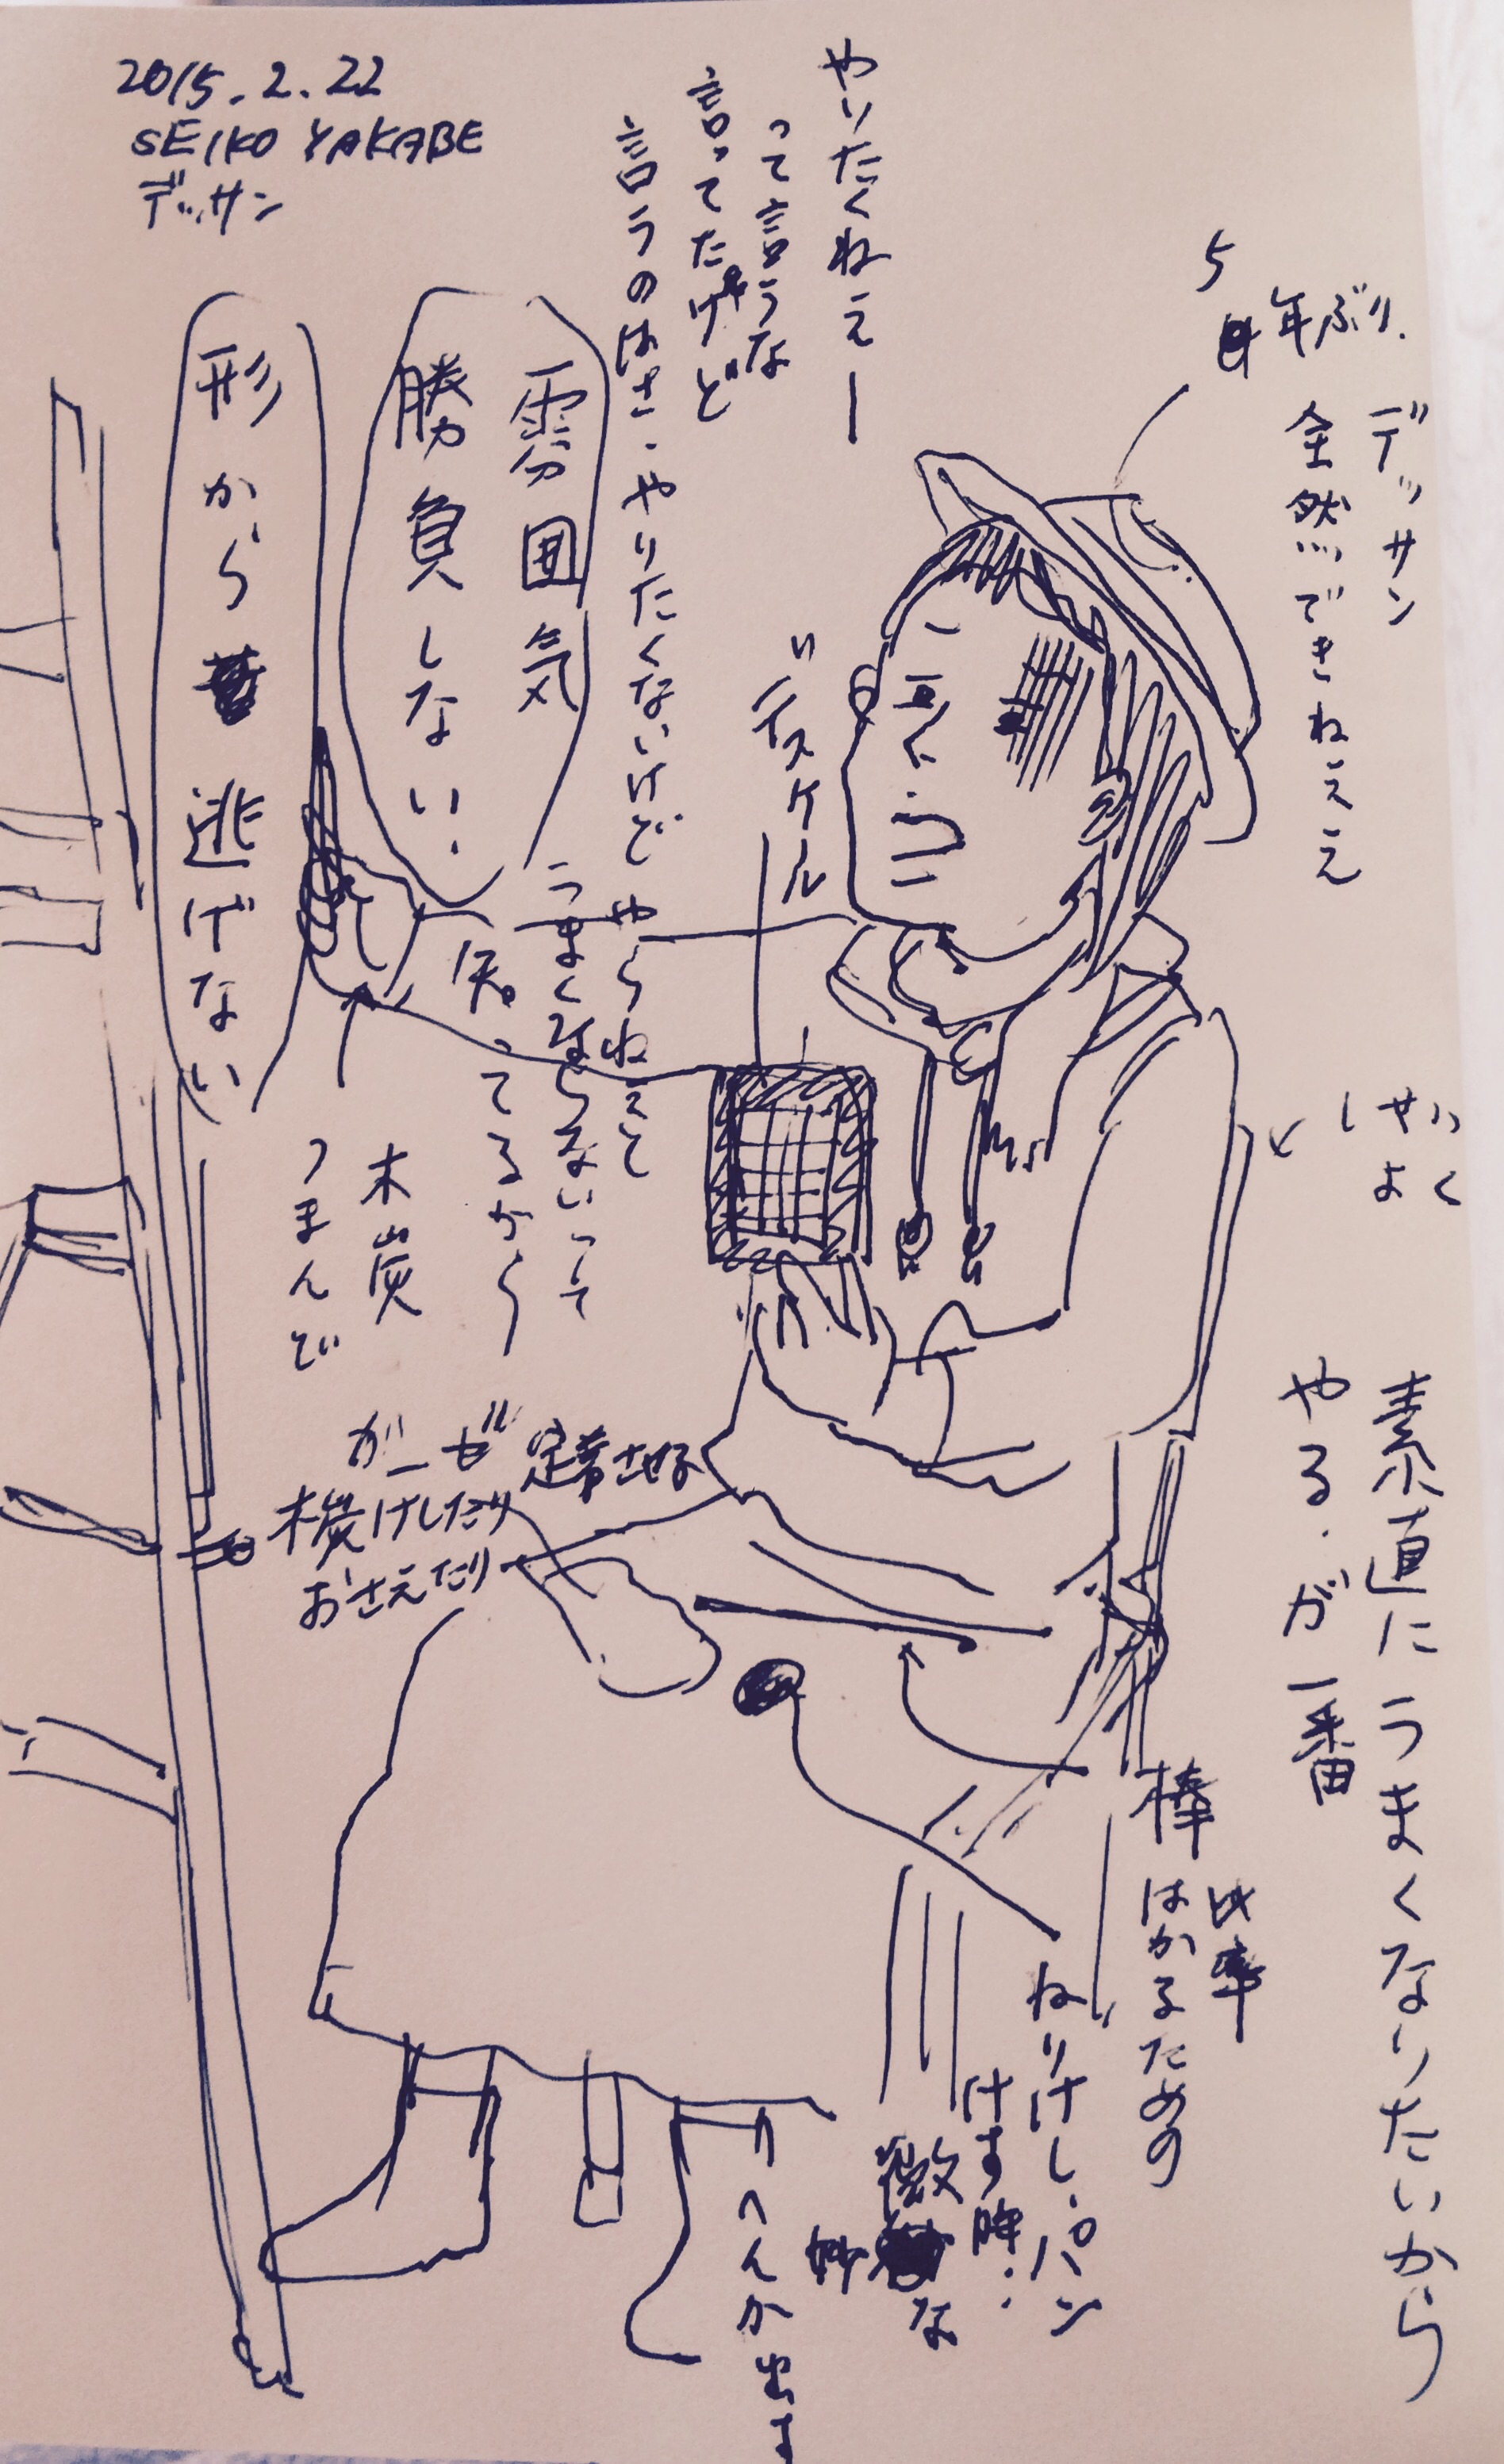 2015.2.22
SEIKO YAKABE
デッサン
5
年ぶり.
デッサン
全然できねええ
やりたくねえー
って言うな
言ってたけど
言うのはさ.やりたくないけど やらねえと
うまくならないって
知ってるから
雰囲気
勝負しない.
形から逃げない
ディスケール
しせいよく
木炭
つまんで
ガーゼ 定着させる
木炭けしたり
おさえたり
素直にうまくなりたいから
やる.が一番
棒
比率
はかるための
ねりけし.パン
けす時..
微妙な
へんか出す